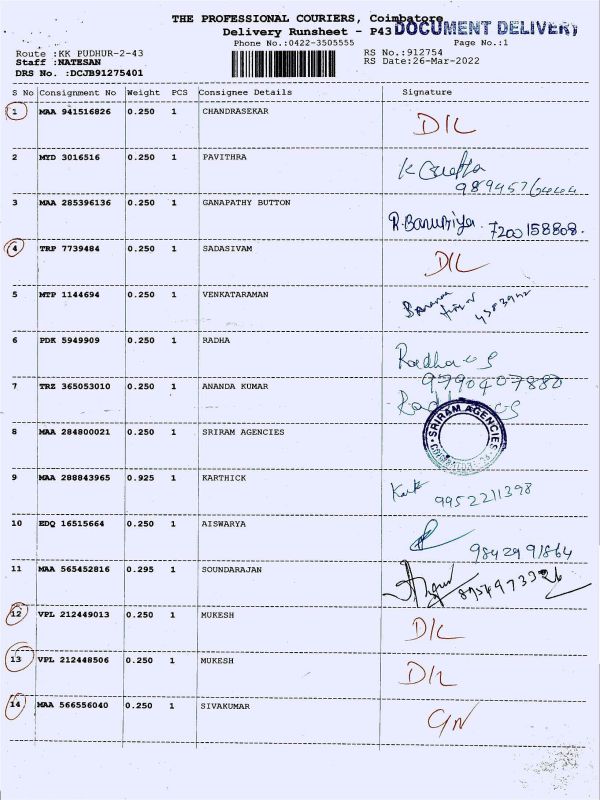 THE PROFESSIONAL COURIERS, Coimbatore
DOCUMENT DELIVERY
Delivery Runsheet - P43
Phone No.:0422-3505555 Page No.:1
Route :KK PUDHUR-2-43 RS No.:912754
Staff :NATESAN RS Date:26-Mar-2022
DRS No. :DCJB91275401
S No Consignment No Weight PCS Consignee Details Signature
1 MAA 941516826 0.250 1 CHANDRASEKAR D/L
2 MYD 3016516 0.250 1 PAVITHRA
3 MAA 285396136 0.250 1 GANAPATHY BUTTON R.BanuPriya. 7200158808.
4 TRP 7739484 0.250 1 SADASIVAM D/L
5 MTP 1144694 0.250 1 VENKATARAMAN
6 PDK 5949909 0.250 1 RADHA Radha G S
9790407880
7 TRZ 365053010 0.250 1 ANANDA KUMAR
8 MAA 284800021 0.250 1 SRIRAM AGENCIES SRIRAM AGENCIES
9 MAA 288843965 0.925 1 KARTHICK 9952211398
10 EDQ 16515664 0.250 1 AISWARYA 9842991864
11 MAA 565452816 0.295 1 SOUNDARAJAN
12 VPL 212449013 0.250 1 MUKESH D/L
13 VPL 212448506 0.250 1 MUKESH D/L
14 MAA 566556040 0.250 1 SIVAKUMAR